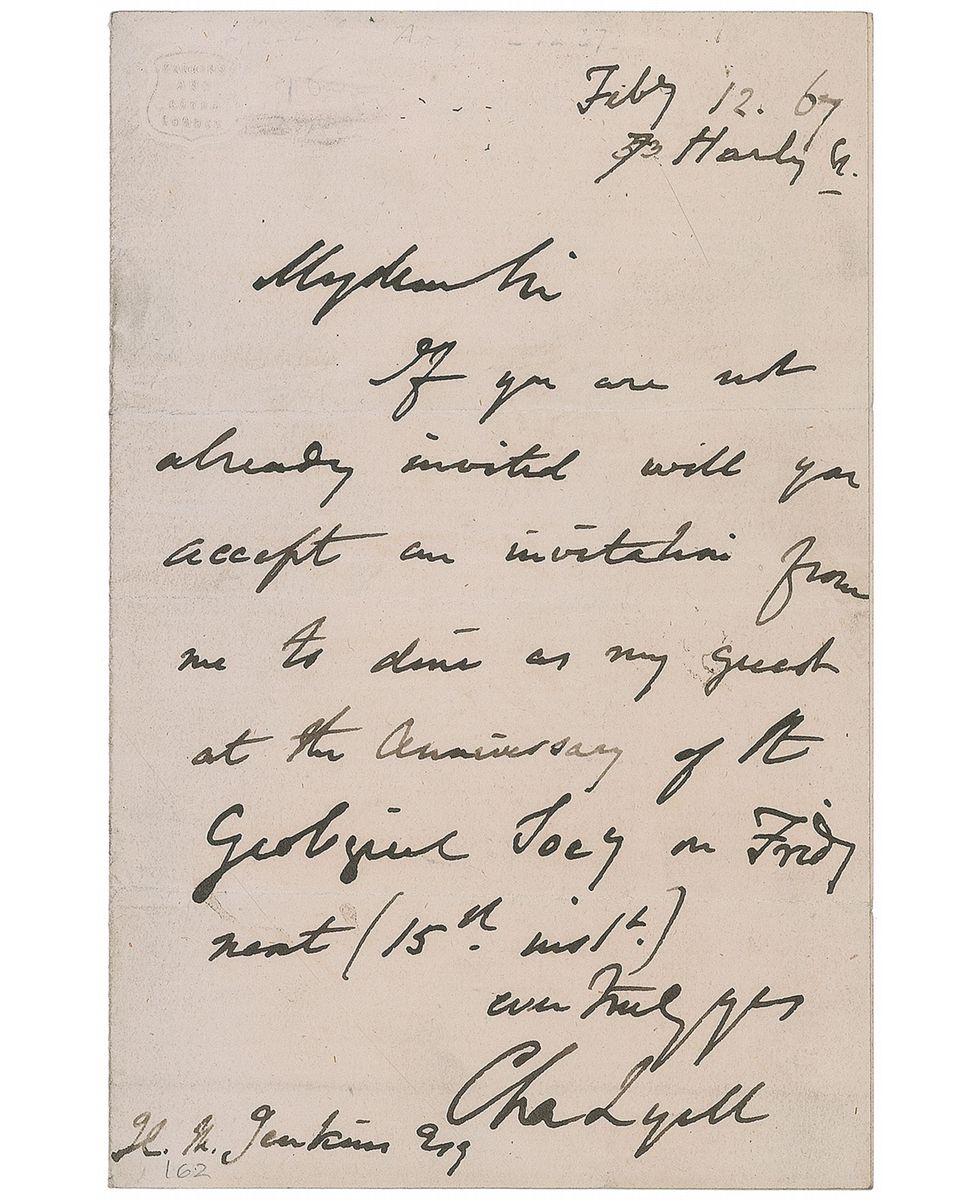 Feby 12. 67
73 Harley St.
My dear Sir
If you are not
already invited will you
accept an invitation from
me to dine as my guest
at the Anniversary of the
Geological Socy on Fridy
next (15th inst.)
ever truly yrs
Cha Lyell
H. M. Jenkins Esq
162